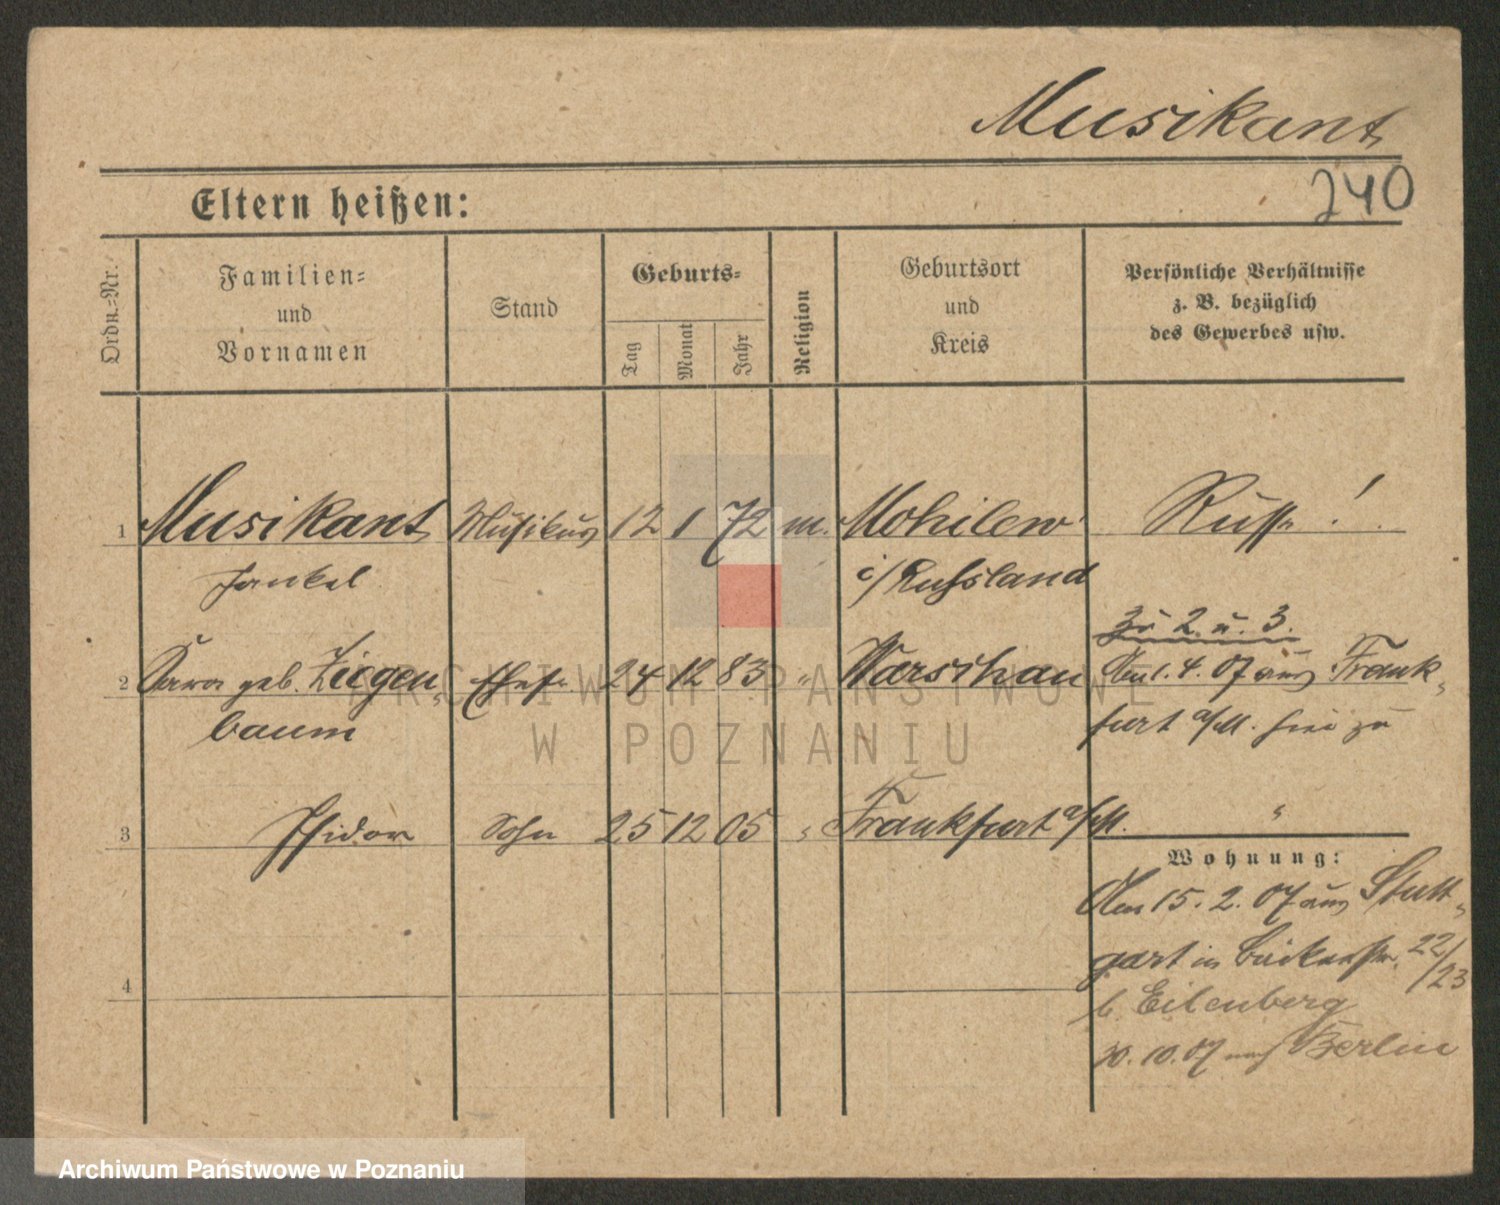 Musikant
240
Eltern heißen:
Ordn.-Nr.
Familien-
und
Vornamen
Stand
Geburts-
Tag
Monat
Jahr
Religion
Geburtsort
und
Kreis
Persönliche Verhältnisse
z. B. bezüglich
des Gewerbes usw.
1 Musikant Musikus 12 1 72 m. Mohilew Russe !
Jankel i/Russland
zu 2 u. 3.
2 Sara geb. Ziegen- Ehefr. 24 12 83 " Warschau Am 1. 4. 07 aus Frank-
baum furt a/M. hier zu
3 Isidor Sohn 25 12 05 " Frankfurt a/M. "
Wohnung:
Am 15. 2. 07 aus Stutt-
gart in Bäckerstr. 22/23
4
b. Eilenberg
30. 10. 07 nach Berlin
ARCHIWUM PAŃSTWOWE
W POZNANIU
Archiwum Państwowe w Poznaniu